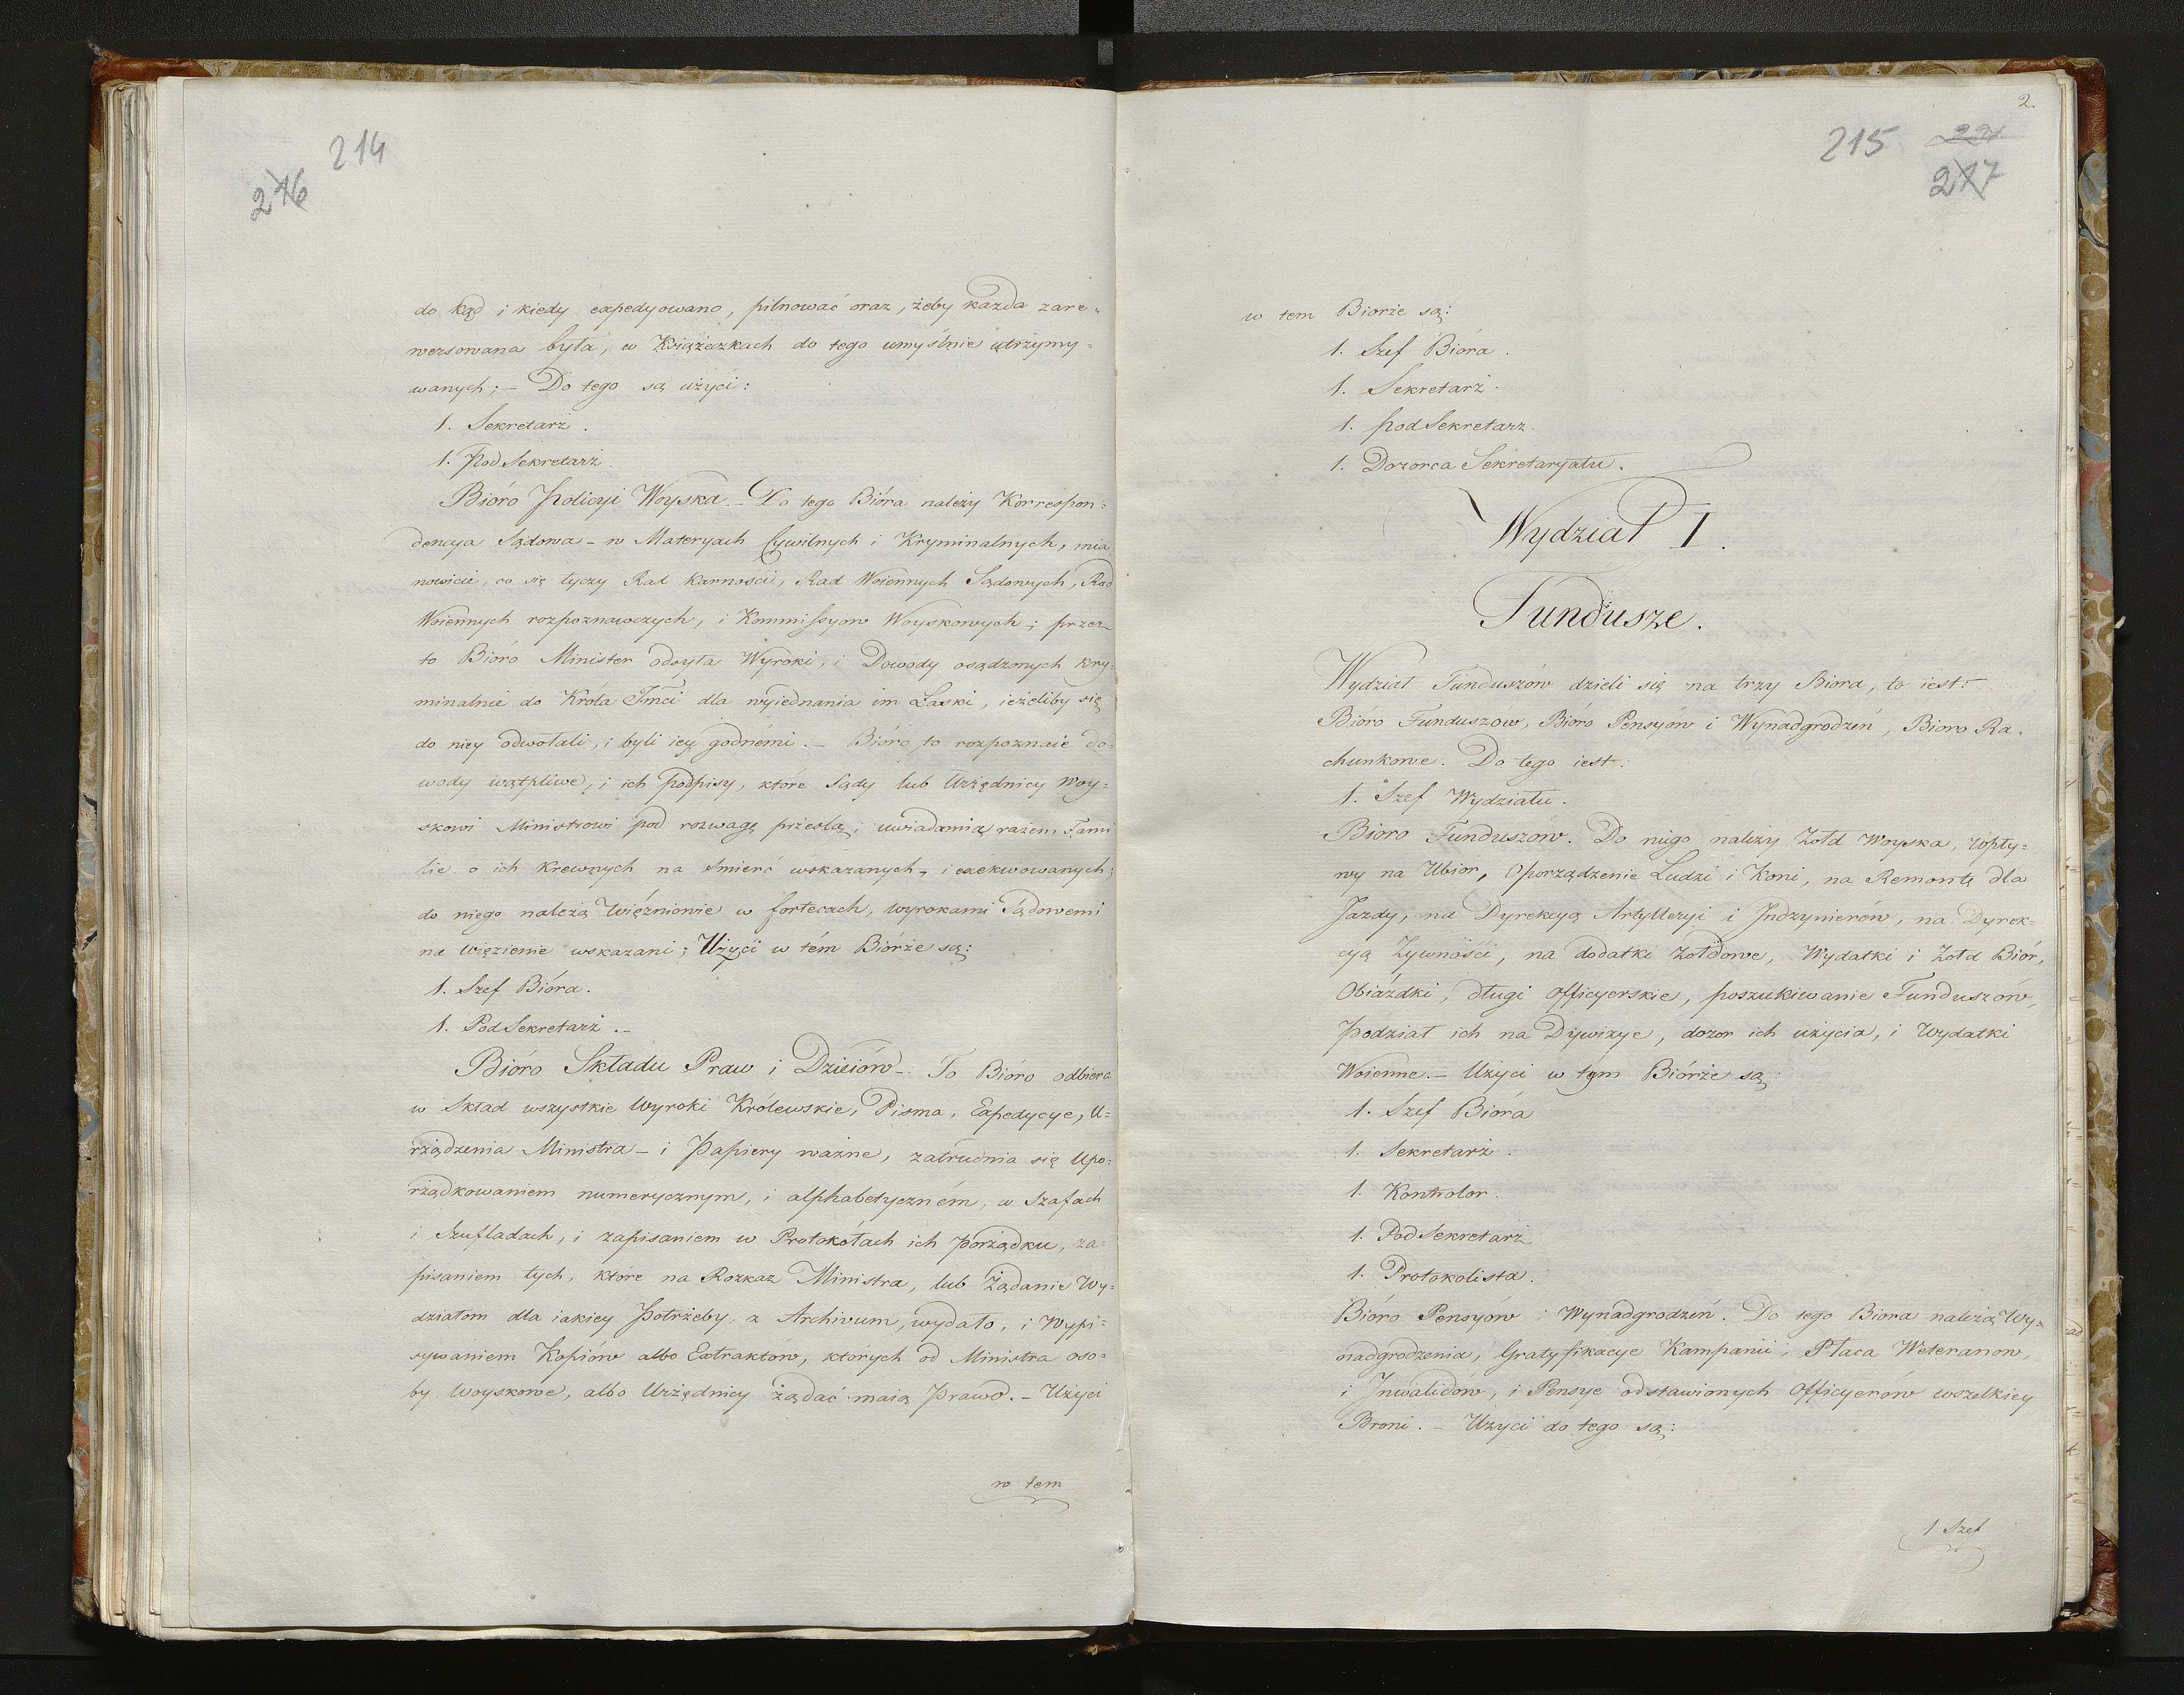 214
216
do kąd i kiedy expedyowano, pilnować oraz, żeby każda zare-
wersowana była, w Książeczkach do tego umyślnie utrzymy=
wanych; – Do tego są użyci:
1. Sekretarz.
1. Pod Sekretarz
Bióro Policyi Woyska. – Do tego Bióra należy Korrespon=
dencya Sądowa – w Materyach Cywilnych i Kryminalnych, mia
nowicie, co się tyczy Rad Karności, Rad Woiennych Sądowych, Rad
Woiennych rozpoznawczych, i Kommissyow Woyskowych; przez
to Bióro Minister odsyła Wyroki, i Dowody osądzonych kry=
minalnie do Króla Jmci dla wyiednania im Łaski, ieżeliby się
do niey odwołali, i byli iey godnémi. – Bióro to rozpoznaie do=
wody wątpliwe, i ich podpisy, które Sądy lub Urzędnicy Woy=
skowi Ministrowi pod rozwagę prześlą; uwiadamia razem Fami
lie o ich Krewnych na śmierć wskazanych, i exekwowanych;
do niego należą Więźniowie w fortecach, wyrokami Sądowemi
na więzienie wskazani; Użyci w tém Biórze są:
1. Szef Bióra.
1. Pod Sekretarz. –
Bióro Składu Praw i Dzieiów –. To Bióro odbiera
w Skład wszystkie Wyroki Królewskie, Pisma, Expedycye, U=
rządzenia Ministra – i Papiery ważne, zatrudnia się Upo=
rządkowaniem numerycznym, i alphabetyczném, w Szafach
i Szufladach, i zapisaniem w Protokółach ich porządku, za=
pisaniem tych, które na Rozkaz Ministra, lub Żądanie Wy=
działom dla iakiey Potrzeby, z Archivum, wydało, i Wypi=
sywaniem Kopiów albo Extraktów, których od Ministra oso=
by Woyskowe, albo Urzędnicy żądać maią Prawo. – Użyci
w tem
2.
215
221
217
w tem Biorze są:
1. Szef Bióra.
1. Sekretarz.
1. pod Sekretarz.
1. Dozorca Sekretaryatu.
Wydział I.
Fundusze.
Wydział Funduszów dzieli się na trzy Biora, to iest:
Bióro Funduszow, Bióro Pensyów i Wynadgrodzeń, Bioro Ra-
chunkowe. Do tego iest:
1. Szef Wydziału.
Bioro Funduszów. Do niego należy Żołd Woyska, wpły=
wy na Ubiór, Oporządzenie Ludzi i Koni, na Remontę dla
Jazdy, na Dyrekcyą Artylleryi i Indzynierów, na Dyrek=
cyą Żywności, na dodatki żołdowe, Wydatki i Żołd Biór,
Obiazdki, długi officyerskie, poszukiwanie Funduszów,
Podział ich na Dywizye, dozor ich użycia, i Wydatki
Woienne. – Użyci w tym Biórze są:
1. Szef Bióra
1. Sekretarz.
1. Kontrolor.
1. Pod Sekretarz
1. Protokolista.
Bióro Pensyów i Wynadgrodzeń. Do tego Biora należą Wy=
nadgrodzenia, Gratyfikacye Kampanii, Płaca Weteranow,
i Inwalidów, i Pensye odstawionych Officyerów wszelkiey
Broni. – Użyci do tego są:
1 Szef